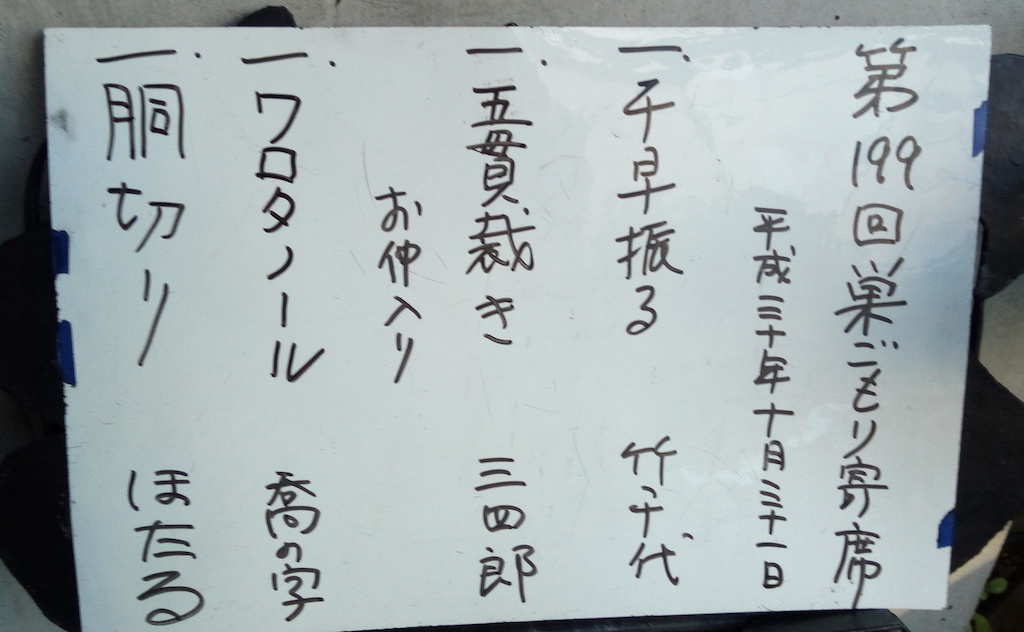 第199回巣ごもり寄席
平成三十年十月三十一日
一.千早振る 竹千代
一.五貫裁き 三四郎
お仲入り
一.ワロタノール 喬の字
一.胴切り ほたる